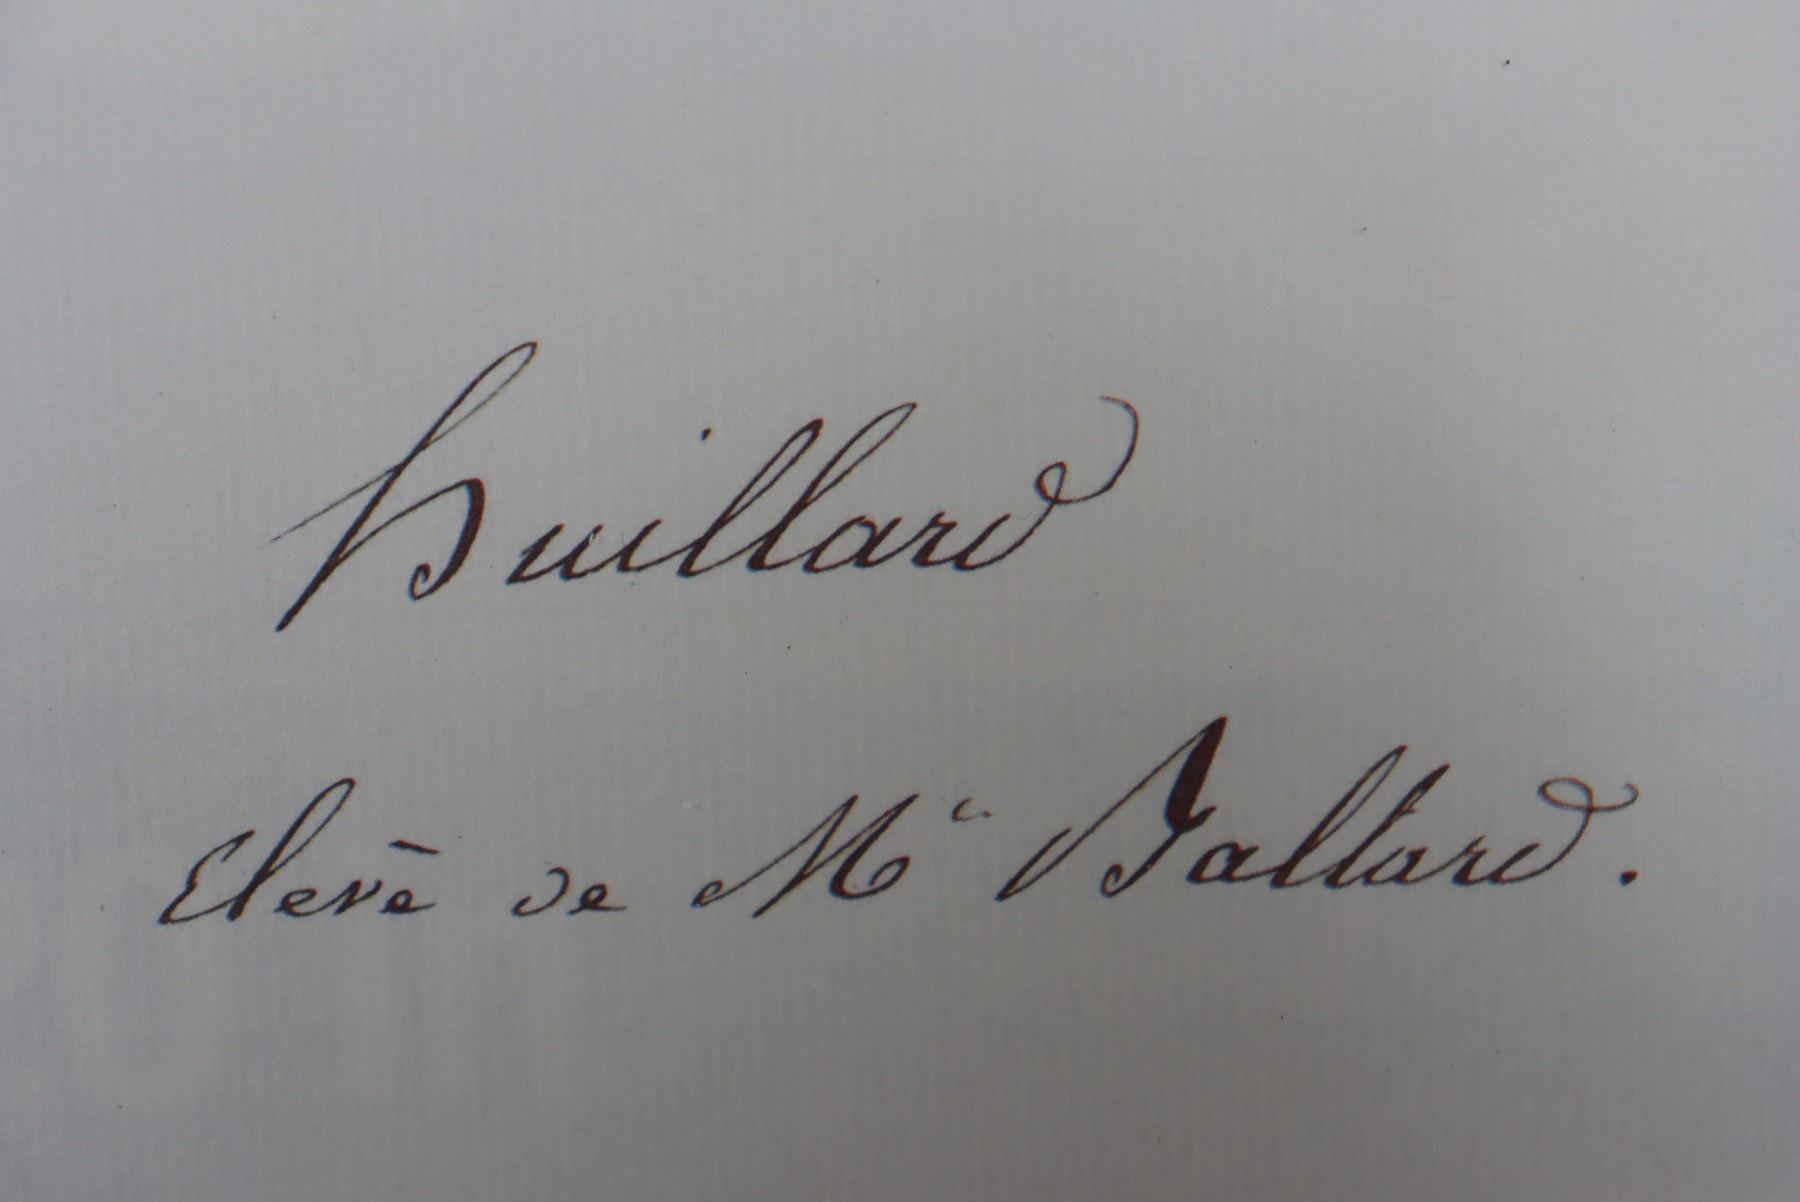 huillard
Elevè de Mr Baltard.